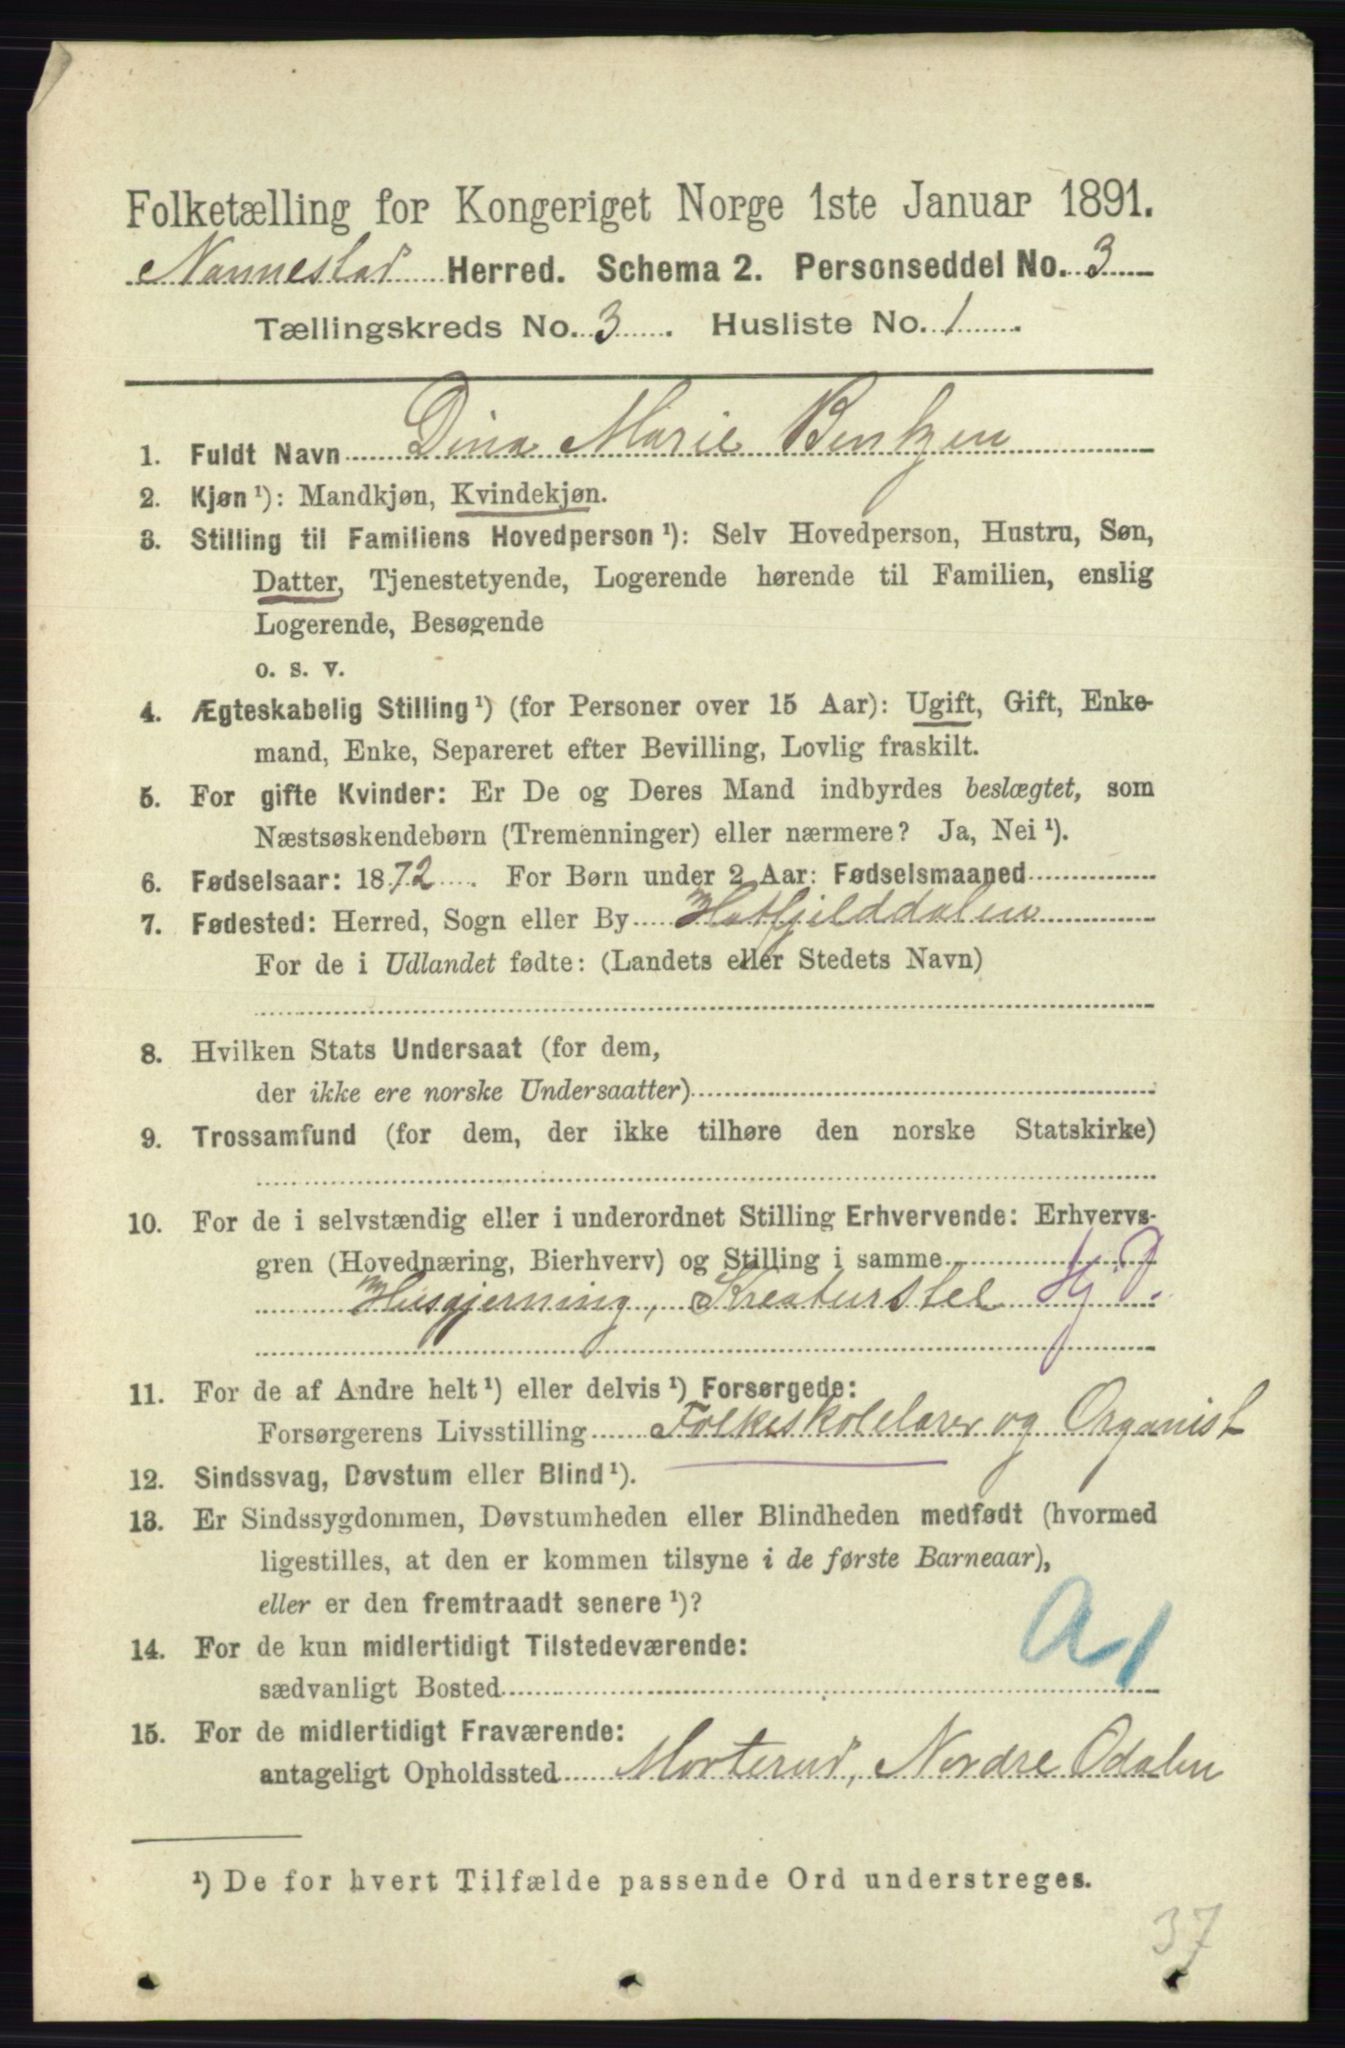 Folketælling for Kongeriget Norge 1ste Januar 1891.
Nannestad Herred. Schema 2. Personseddel No. 3
Tællingskreds No. 3. Husliste No. 1.
1. Fuldt Navn Dina Marie Bentzen
2. Kjøn ¹): Mandkjøn, Kvindekjøn.
3. Stilling til Familiens Hovedperson ¹): Selv Hovedperson, Hustru, Søn,
Datter, Tjenestetyende, Logerende hørende til Familien, enslig
Logerende, Besøgende
o. s. v.
4. Ægteskabelig Stilling ¹) (for Personer over 15 Aar): Ugift, Gift, Enke-
mand, Enke, Separeret efter Bevilling, Lovlig fraskilt.
5. For gifte Kvinder: Er De og Deres Mand indbyrdes beslægtet, som
Næstsøskendebørn (Tremenninger) eller nærmere? Ja, Nei ¹).
6. Fødselsaar: 1872. For Børn under 2 Aar: Fødselsmaaned
7. Fødested: Herred, Sogn eller By Hatfjelddalen
For de i Udlandet fødte: (Landets eller Stedets Navn)
8. Hvilken Stats Undersaat (for dem,
der ikke ere norske Undersaatter)
9. Trossamfund (for dem, der ikke tilhøre den norske Statskirke)
10. For de i selvstændig eller i underordnet Stilling Erhvervende: Erhvervs-
gren (Hovednæring, Bierhverv) og Stilling i samme
Husgjerning, Kreaturstel Hj. D.
11. For de af Andre helt ¹) eller delvis ¹) Forsørgede:
Forsørgerens Livsstilling Folkeskolelærer og Organist
12. Sindssvag, Døvstum eller Blind ¹).
13. Er Sindssygdommen, Døvstumheden eller Blindheden medfødt (hvormed
ligestilles, at den er kommen tilsyne i de første Barneaar),
eller er den fremtraadt senere ¹)?
14. For de kun midlertidigt Tilstedeværende:
sædvanligt Bosted
15. For de midlertidigt Fraværende:
antageligt Opholdssted Morterud, Nordre Odalen
¹) De for hvert Tilfælde passende Ord understreges.
37